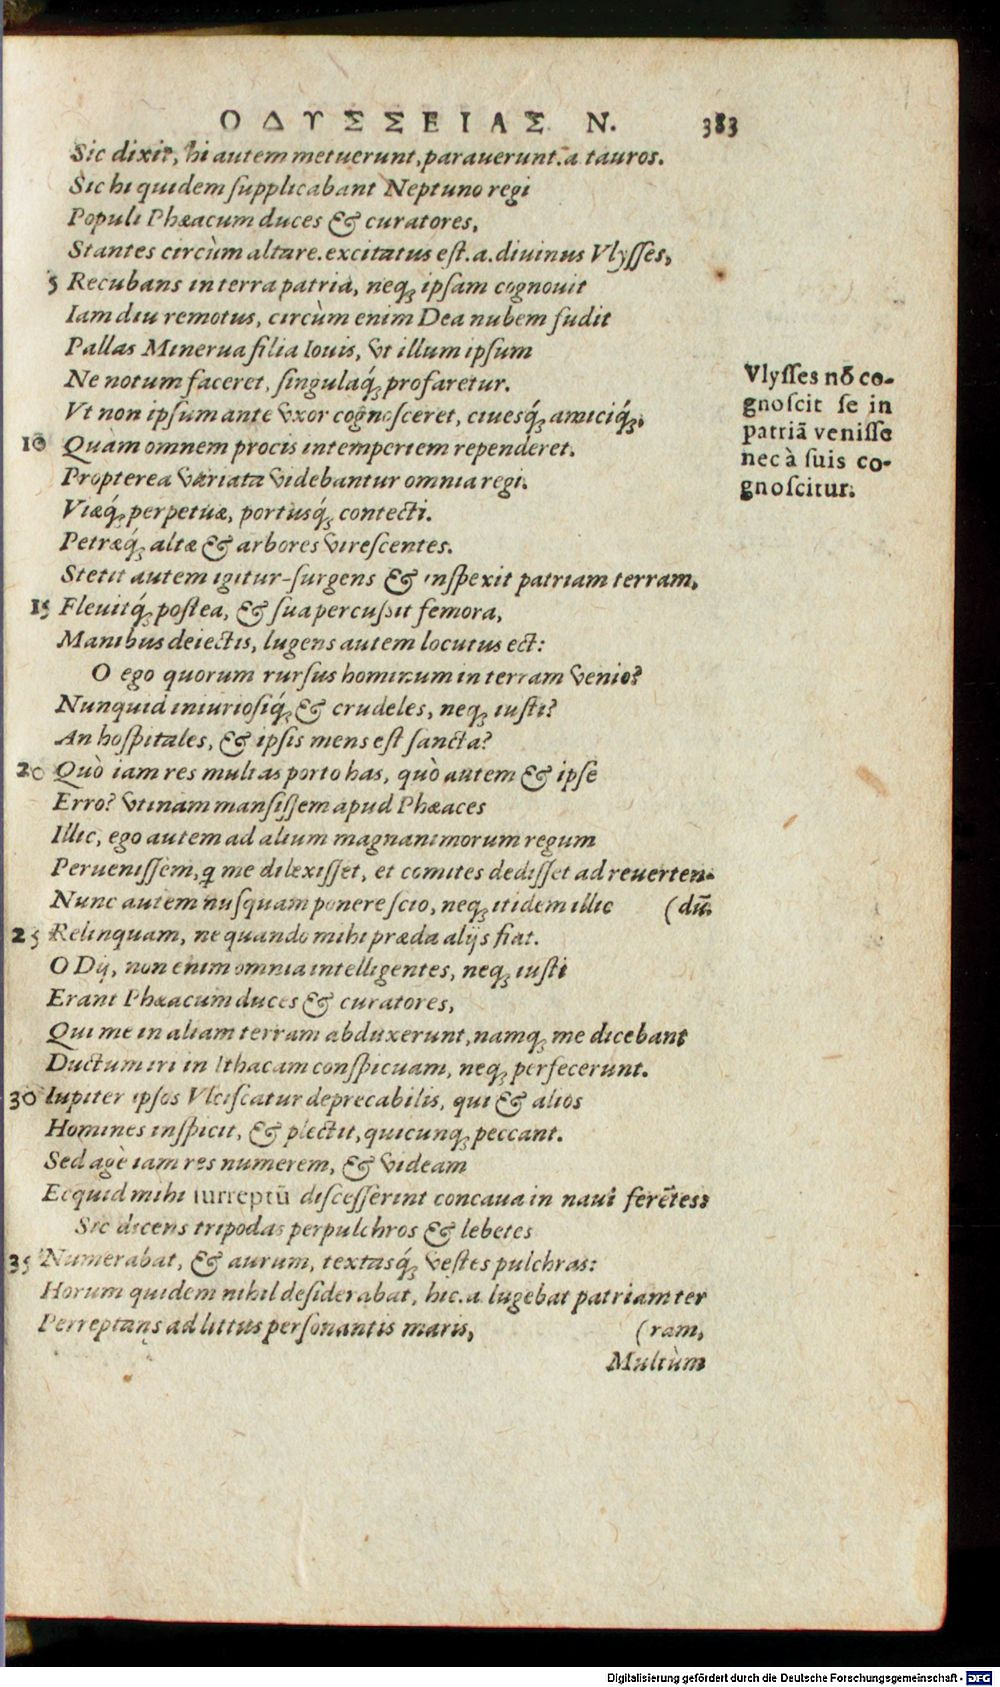 ΟΔΥΣΣΕΙΑΣ Ν. 383
Sic dixit, hi autem metuerunt, parauerunt.a tauros.
Sic hi quidem ſupplicabant Neptuno regi
Populi Phæacum duces & curatores,
Stantes circùm altare. excitatus eſt.a.diuinus Vlyſſes,
5 Recubans in terra patria, neq; ipſam cognouit
Iam diu remotus, circùm enim Dea nubem fudit
Pallas Minerua filia Iouis, vt illum ipſum
Ne notum faceret, ſingulaq́; profaretur.
Vt non ipſum ante vxor cognoſceret, ciuesq́; amiciq́;,
10 Quam omnem procis intemperiem rependeret.
Propterea variata videbantur omnia regi.
Viæq́; perpetuæ, portusq́; contecti.
Petræq́; altæ & arbores vireſcentes.
Stetit autem igitur-ſurgens & inſpexit patriam terram,
15 Fleuitq́; poſtea, & ſua percußit femora,
Manibus deiectis, lugens autem locutus ect:
O ego quorum rurſus hominum in terram venio?
Nunquid iniurioſiq́; & crudeles, neq; iuſti?
An hoſpitales, & ipſis mens eſt ſancta?
20 Quò iam res multas porto has, quò autem & ipſe
Erro? vtinam manſiſſem apud Phæaces
Illic, ego autem ad alium magnanimorum regum
Perueniſſem, q̃ me dilexiſſet, et comites dediſſet ad reuerten-
Nunc autem nuſquam ponere ſcio, neq; itidem illic (dũ.
25 Relinquam, ne quando mihi præda alijs fiat.
O Dij, non enim omnia intelligentes, neq; iuſti
Erant Phæacum duces & curatores,
Qui me in aliam terram abduxerunt, namq; me dicebant
Ductum iri in Ithacam conſpicuam, neq; perfecerunt.
30 Iupiter ipſos Vlciſcatur deprecabilis, qui & alios
Homines inſpicit, & plectit, quicunq; peccant.
Sed agè iam res numerem, & videam
Ecquid mihi ſurreptũ diſceſſerint concaua in naui ferẽtes:
Sic dicens tripodas perpulchros & lebetes
35 Numerabat, & aurum, textasq́; veſtes pulchras:
Horum quidem nihil deſiderabat, hic.a lugebat patriam ter
Perreptans ad littus perſonantis maris, (ram,
Multùm
Vlyſſes nõ co-
gnoſcit ſe in
patriã veniſſe
nec à ſuis co-
gnoſcitur.
Digitalisierung gefördert durch die Deutsche Forschungsgemeinschaft - DFG